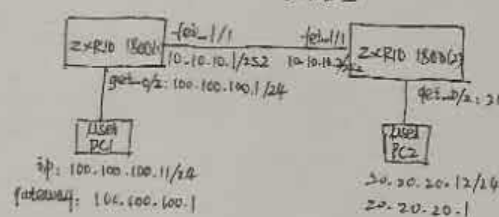 ZXR10 1800(1)
fei_1/1
10.10.10.1/252
fei_1/1
ZXR10 1800(2)
gei_0/2: 100.100.100.1/24
gei_0/2:
User
PC1
User
PC2
ip: 100.100.100.11/24
gateway: 100.100.100.1
20.20.20.12/24
20.20.20.1